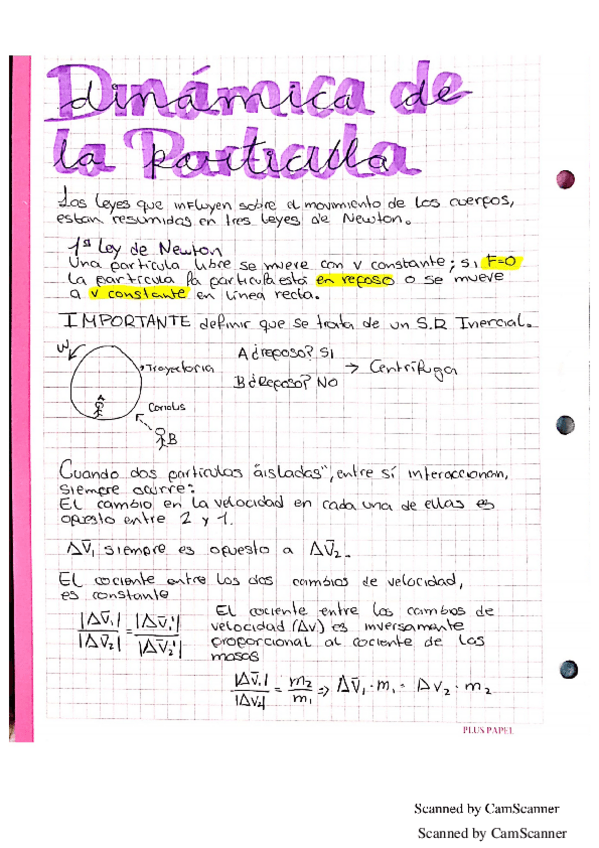 Dinámica de
la Partícula
Las leyes que influyen sobre el movimiento de los cuerpos,
estan resumidas en tres leyes de Newton.
1ª Ley de Newton
Una partícula libre se mueve con v constante; si F=0
la partícula la partícula está en reposo o se mueve
a v constante en línea recta.
IMPORTANTE definir que se trata de un S.R Inercial.
W
A ¿reposo? SI
Trayectoria
→ Centrífuga
B ¿Reposo? NO
A
Coriolis
B
Cuando dos partículas "aisladas", entre sí interaccionan,
siempre ocurre:
El cambio en la velocidad en cada una de ellas es
opuesto entre 2 y 1.
Δv̄₁ siempre es opuesto a Δv̄₂.
El cociente entre los dos cambios de velocidad,
es constante
|Δv̄₁| / |Δv̄₂| = |Δv̄₁'| / |Δv̄₂'|
El cociente entre los cambios de
velocidad (Δv) es inversamente
proporcional al cociente de las
masas
|Δv̄₁| / |Δv₂| = m₂ / m₁ => Δv̄₁ · m₁ = Δv₂ · m₂
PLUS PAPEL
Scanned by CamScanner
Scanned by CamScanner